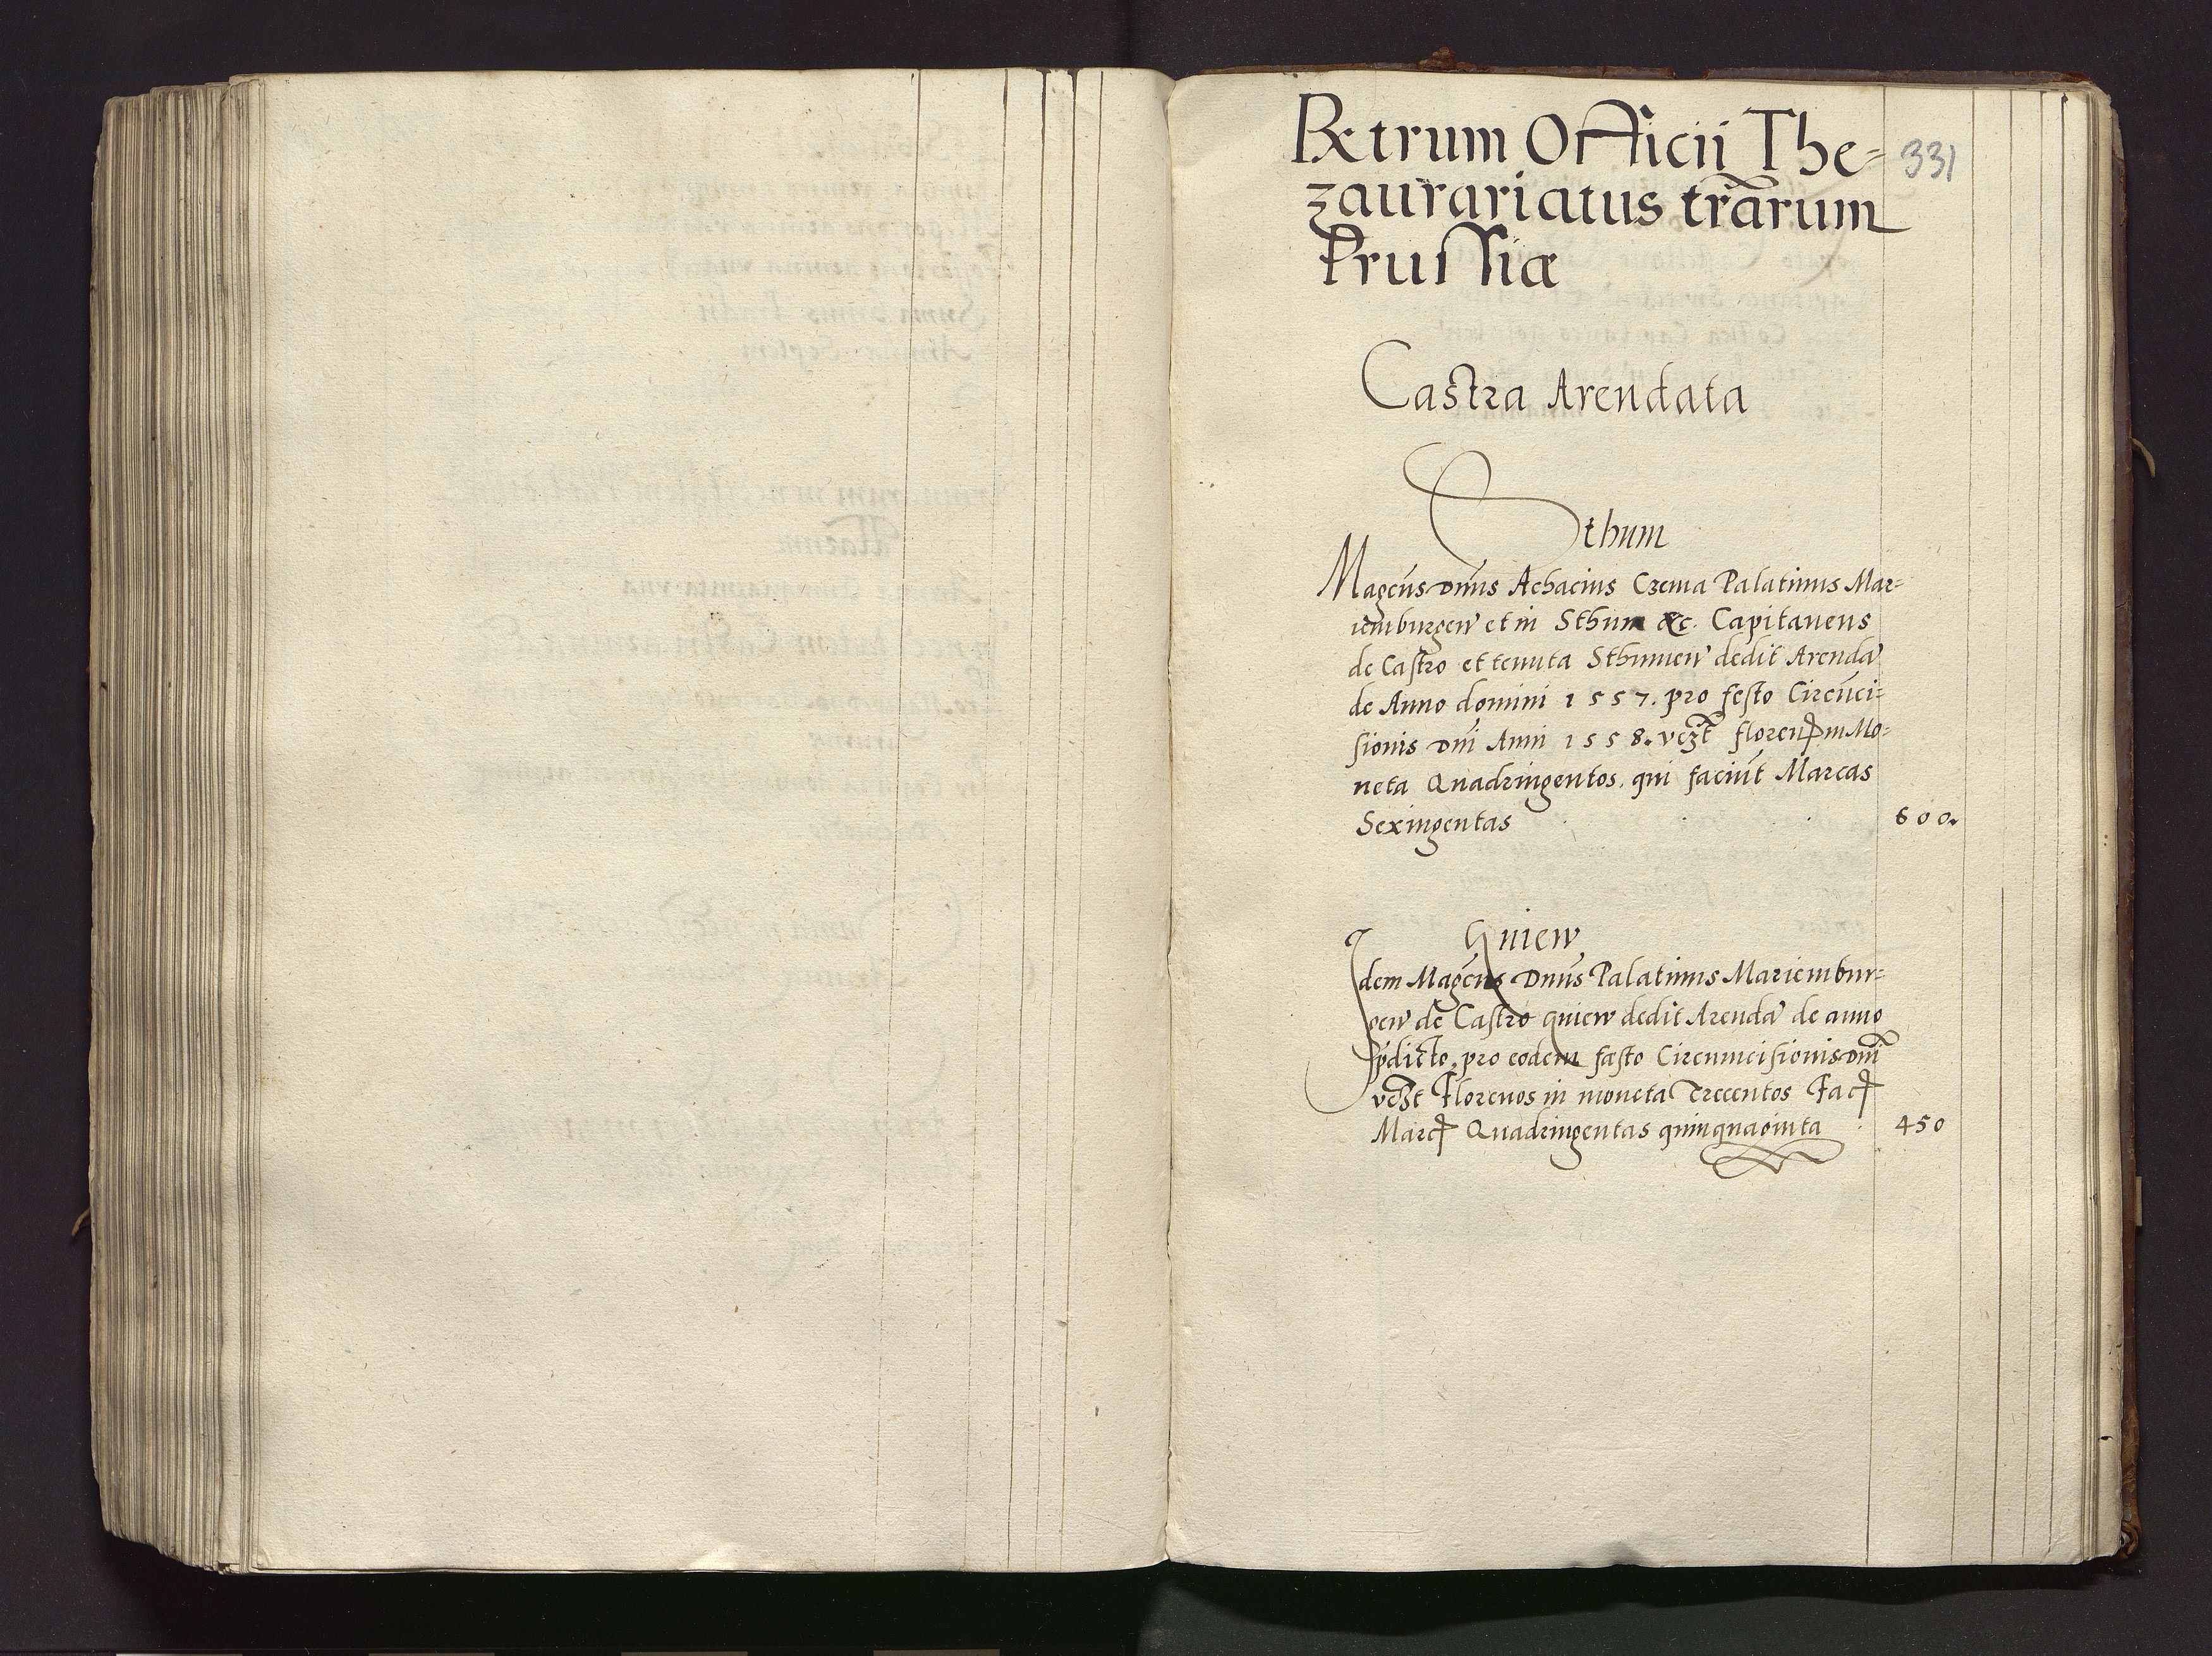 Rx̄trum Officii The=
331
zaurariatus tr̄arum
Prussiæ
Castra Arendata
Sthum
Magcūs Dnūs Achacius Czema Palatinus Mar=
iemburgen̄ et in Sthum &c. Capitaneus
de Castro et tenuta Sthumen̄ dedit Arendā
de Anno domini 1557. pro festo Circūci=
sionis Dnī Anni 1558. vczt̄ floren̄ in Mo=
neta Quadringentos. qui faciūt Marcas
Sexingentas 600.
Gniew
Idem Magcūs Dnūs Palatinus Mariembur=
gen̄ de Castro Gniew dedit Arendā de anno
p̄dicto. pro eodem fæsto Circumcisionis Dnī
vczt̄ Florenos in moneta Trecentos Fac̄
Marc̄ Quadringentas quinquaginta 450